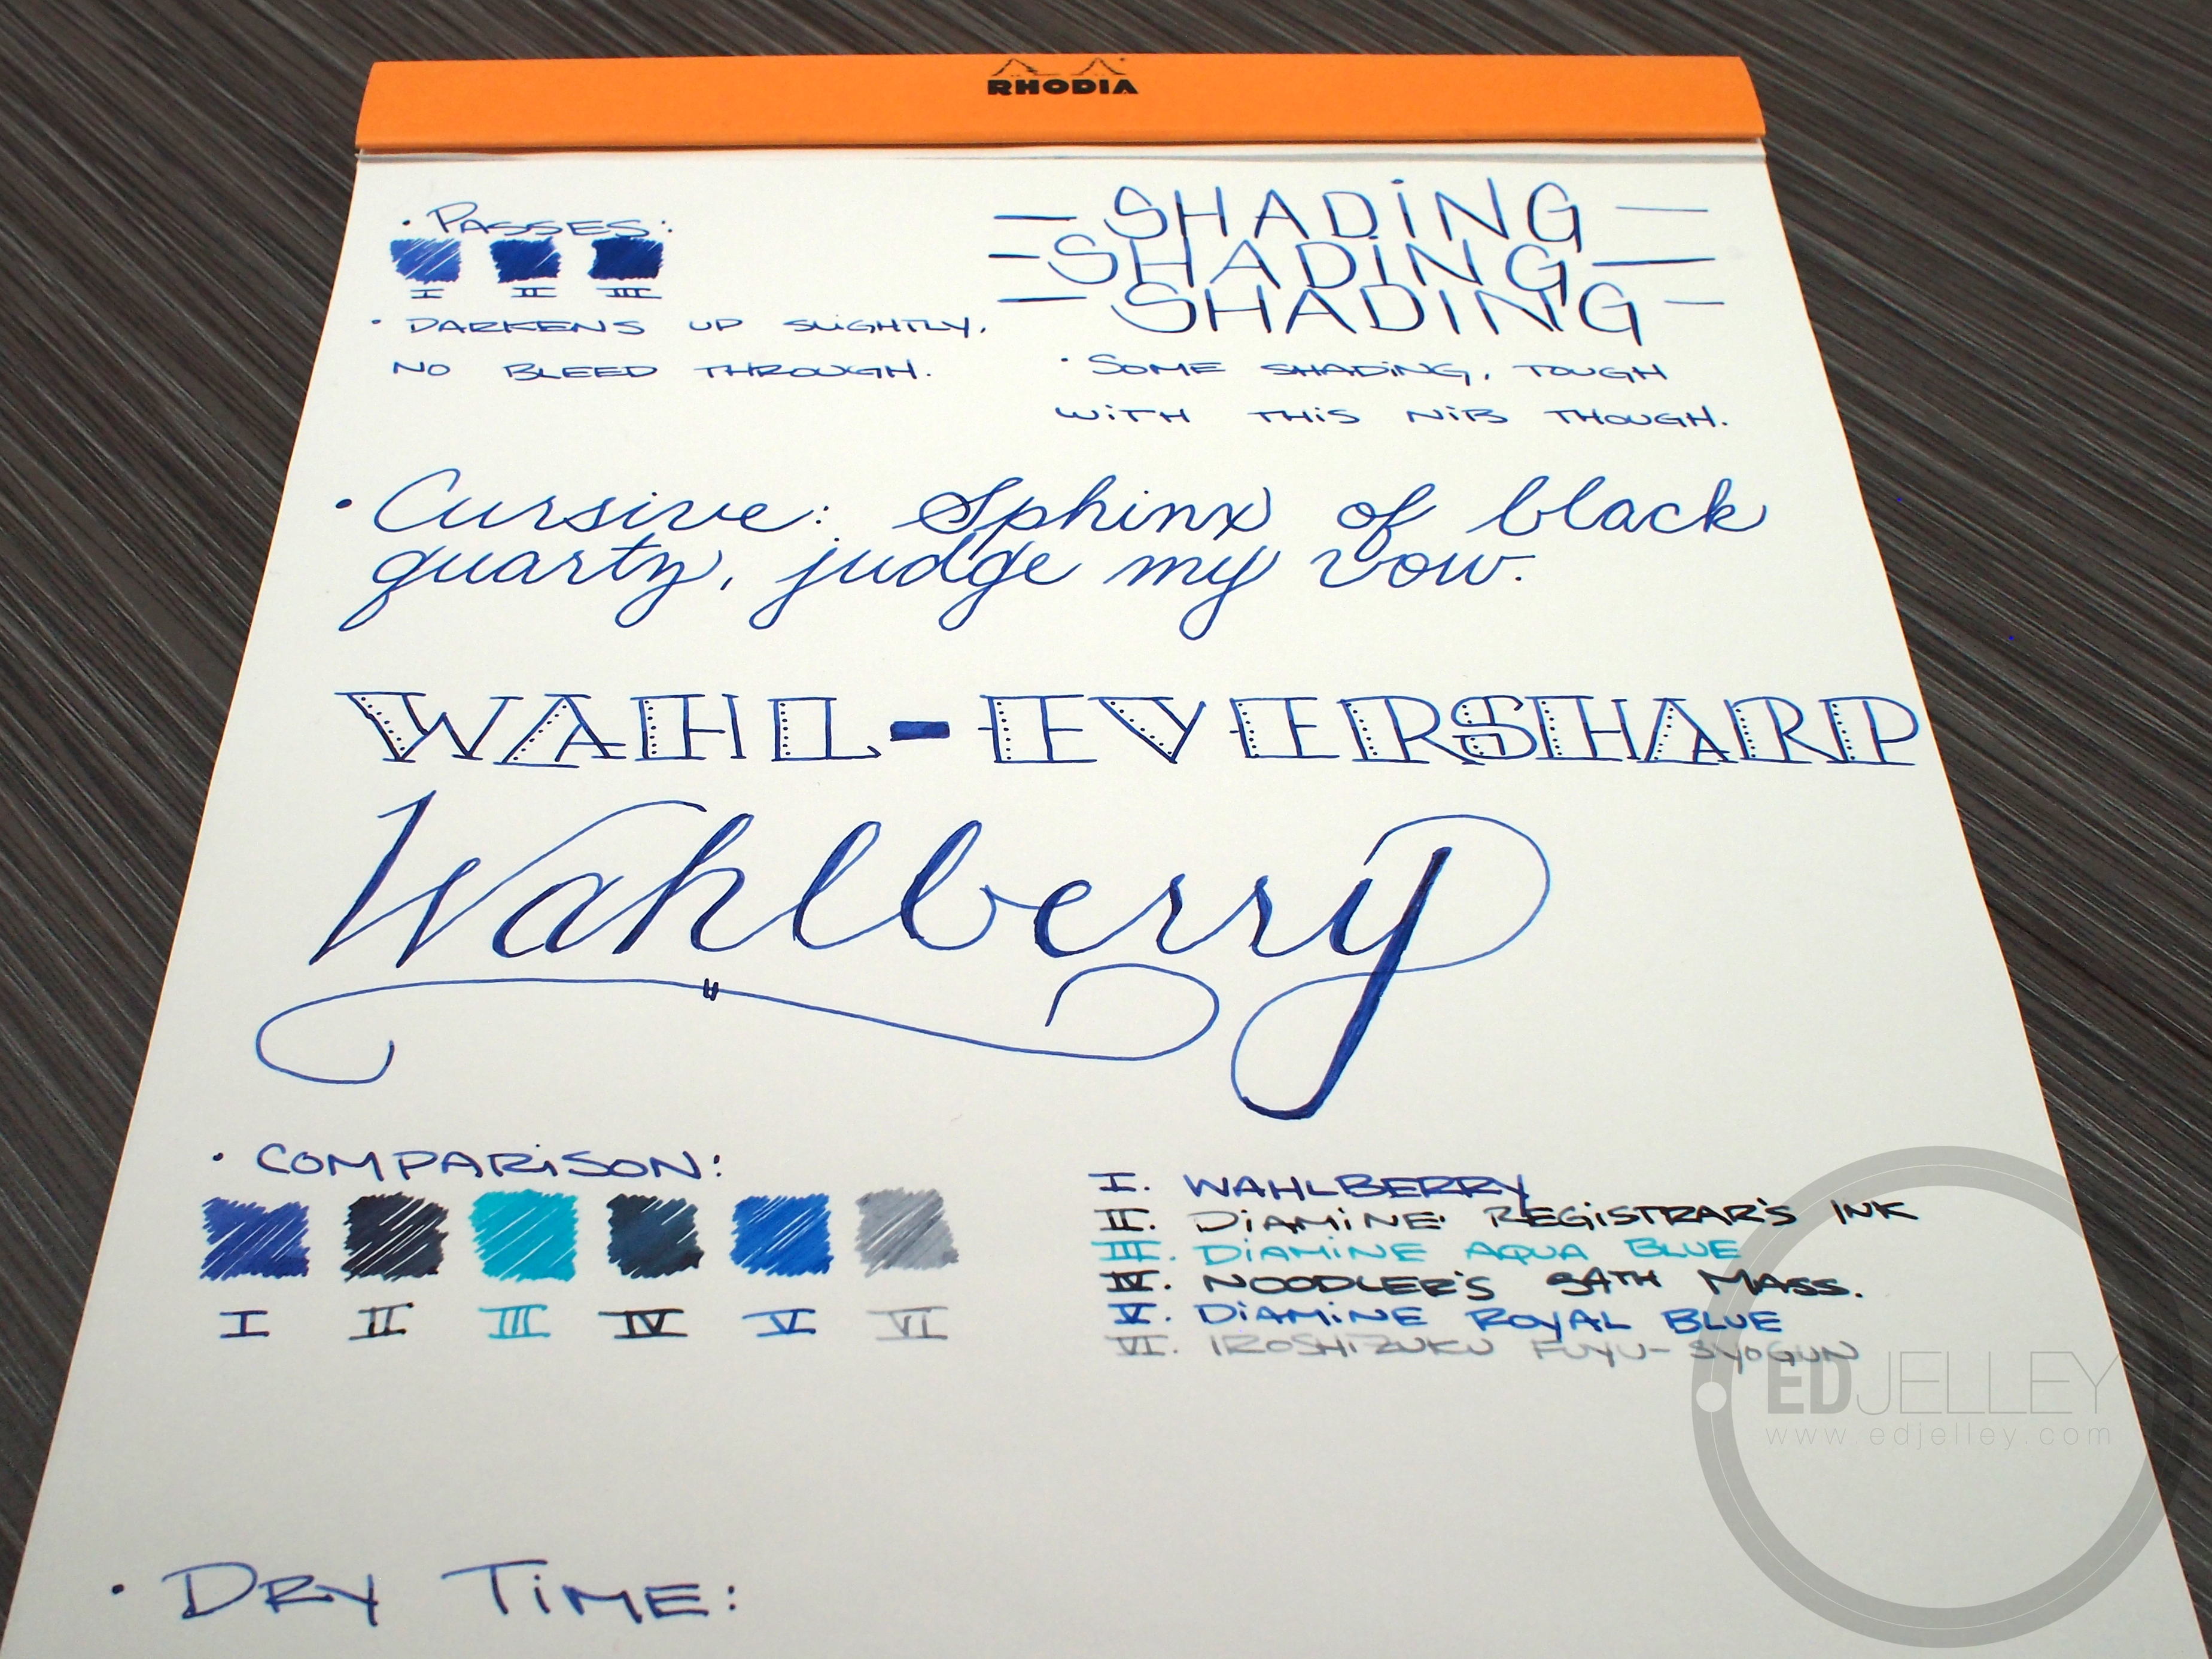 RHODIA
• PASSES:
I II III
• DARKENS UP SLIGHTLY,
NO BLEED THROUGH.
— SHADING —
— SHADING —
— SHADING —
• SOME SHADING, TOUGH
WITH THIS NIB THOUGH.
• Cursive: Sphinx of black
quartz, judge my vow.
WAHL-EVERSHARP
Wahlberry
• COMPARISON:
I II III IV V VI
I. WAHLBERRY
II. DIAMINE REGISTRAR'S INK
III. DIAMINE AQUA BLUE
IV. NOODLER'S 54TH MASS.
V. DIAMINE ROYAL BLUE
VI. IROSHIZUKU FUYU-SYOGUN
EDJELLEY
www.edjelley.com
• DRY TIME: